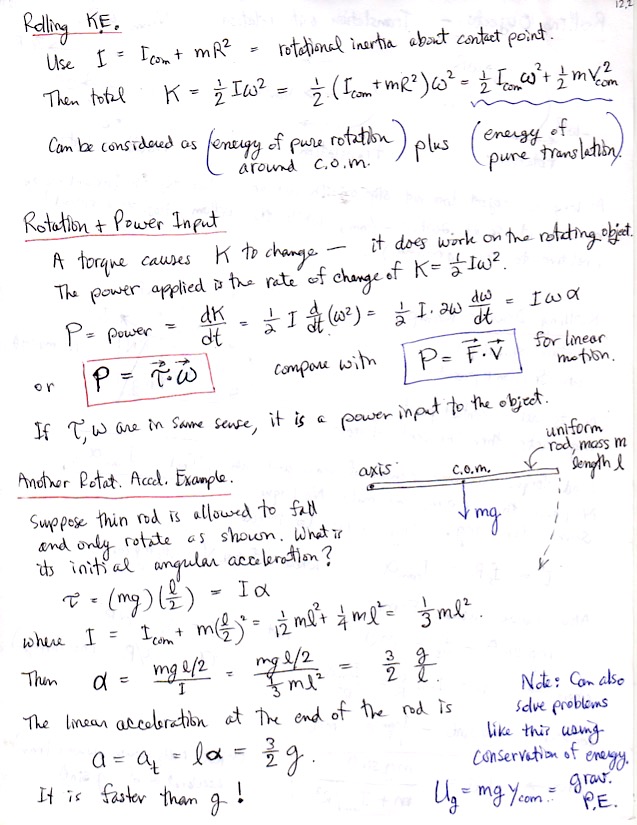 12.2
Rolling K.E.
Use I = I_com + mR² = rotational inertia about contact point.
Then total K = ½ Iω² = ½ (I_com + mR²)ω² = ½ I_com ω² + ½ m V_com²
Can be considered as (energy of pure rotation around c.o.m.) plus (energy of pure translation)
Rotation + Power Input
A torque causes K to change — it does work on the rotating object.
The power applied is the rate of change of K = ½ Iω².
P = power = dK/dt = ½ I d/dt (ω²) = ½ I · 2ω dω/dt = I ω α
or P = τ⃗·ω⃗ compare with P = F⃗·V⃗ for linear motion.
If τ, ω are in same sense, it is a power input to the object.
Another Rotat. Accel. Example.
axis c.o.m. uniform rod, mass m length l
mg
Suppose thin rod is allowed to fall
and only rotate as shown. What is
its initial angular acceleration?
τ = (mg)(l/2) = I α
where I = I_com + m(l/2)² = 1/12 ml² + ¼ ml² = 1/3 ml².
Then α = mg l/2 / I = mg l/2 / ⅓ ml² = 3/2 g/l.
The linear acceleration at the end of the rod is
a = a_t = lα = 3/2 g.
It is faster than g!
Note: Can also
solve problems
like this using
conservation of energy.
U_g = mg y_com = grav. P.E.